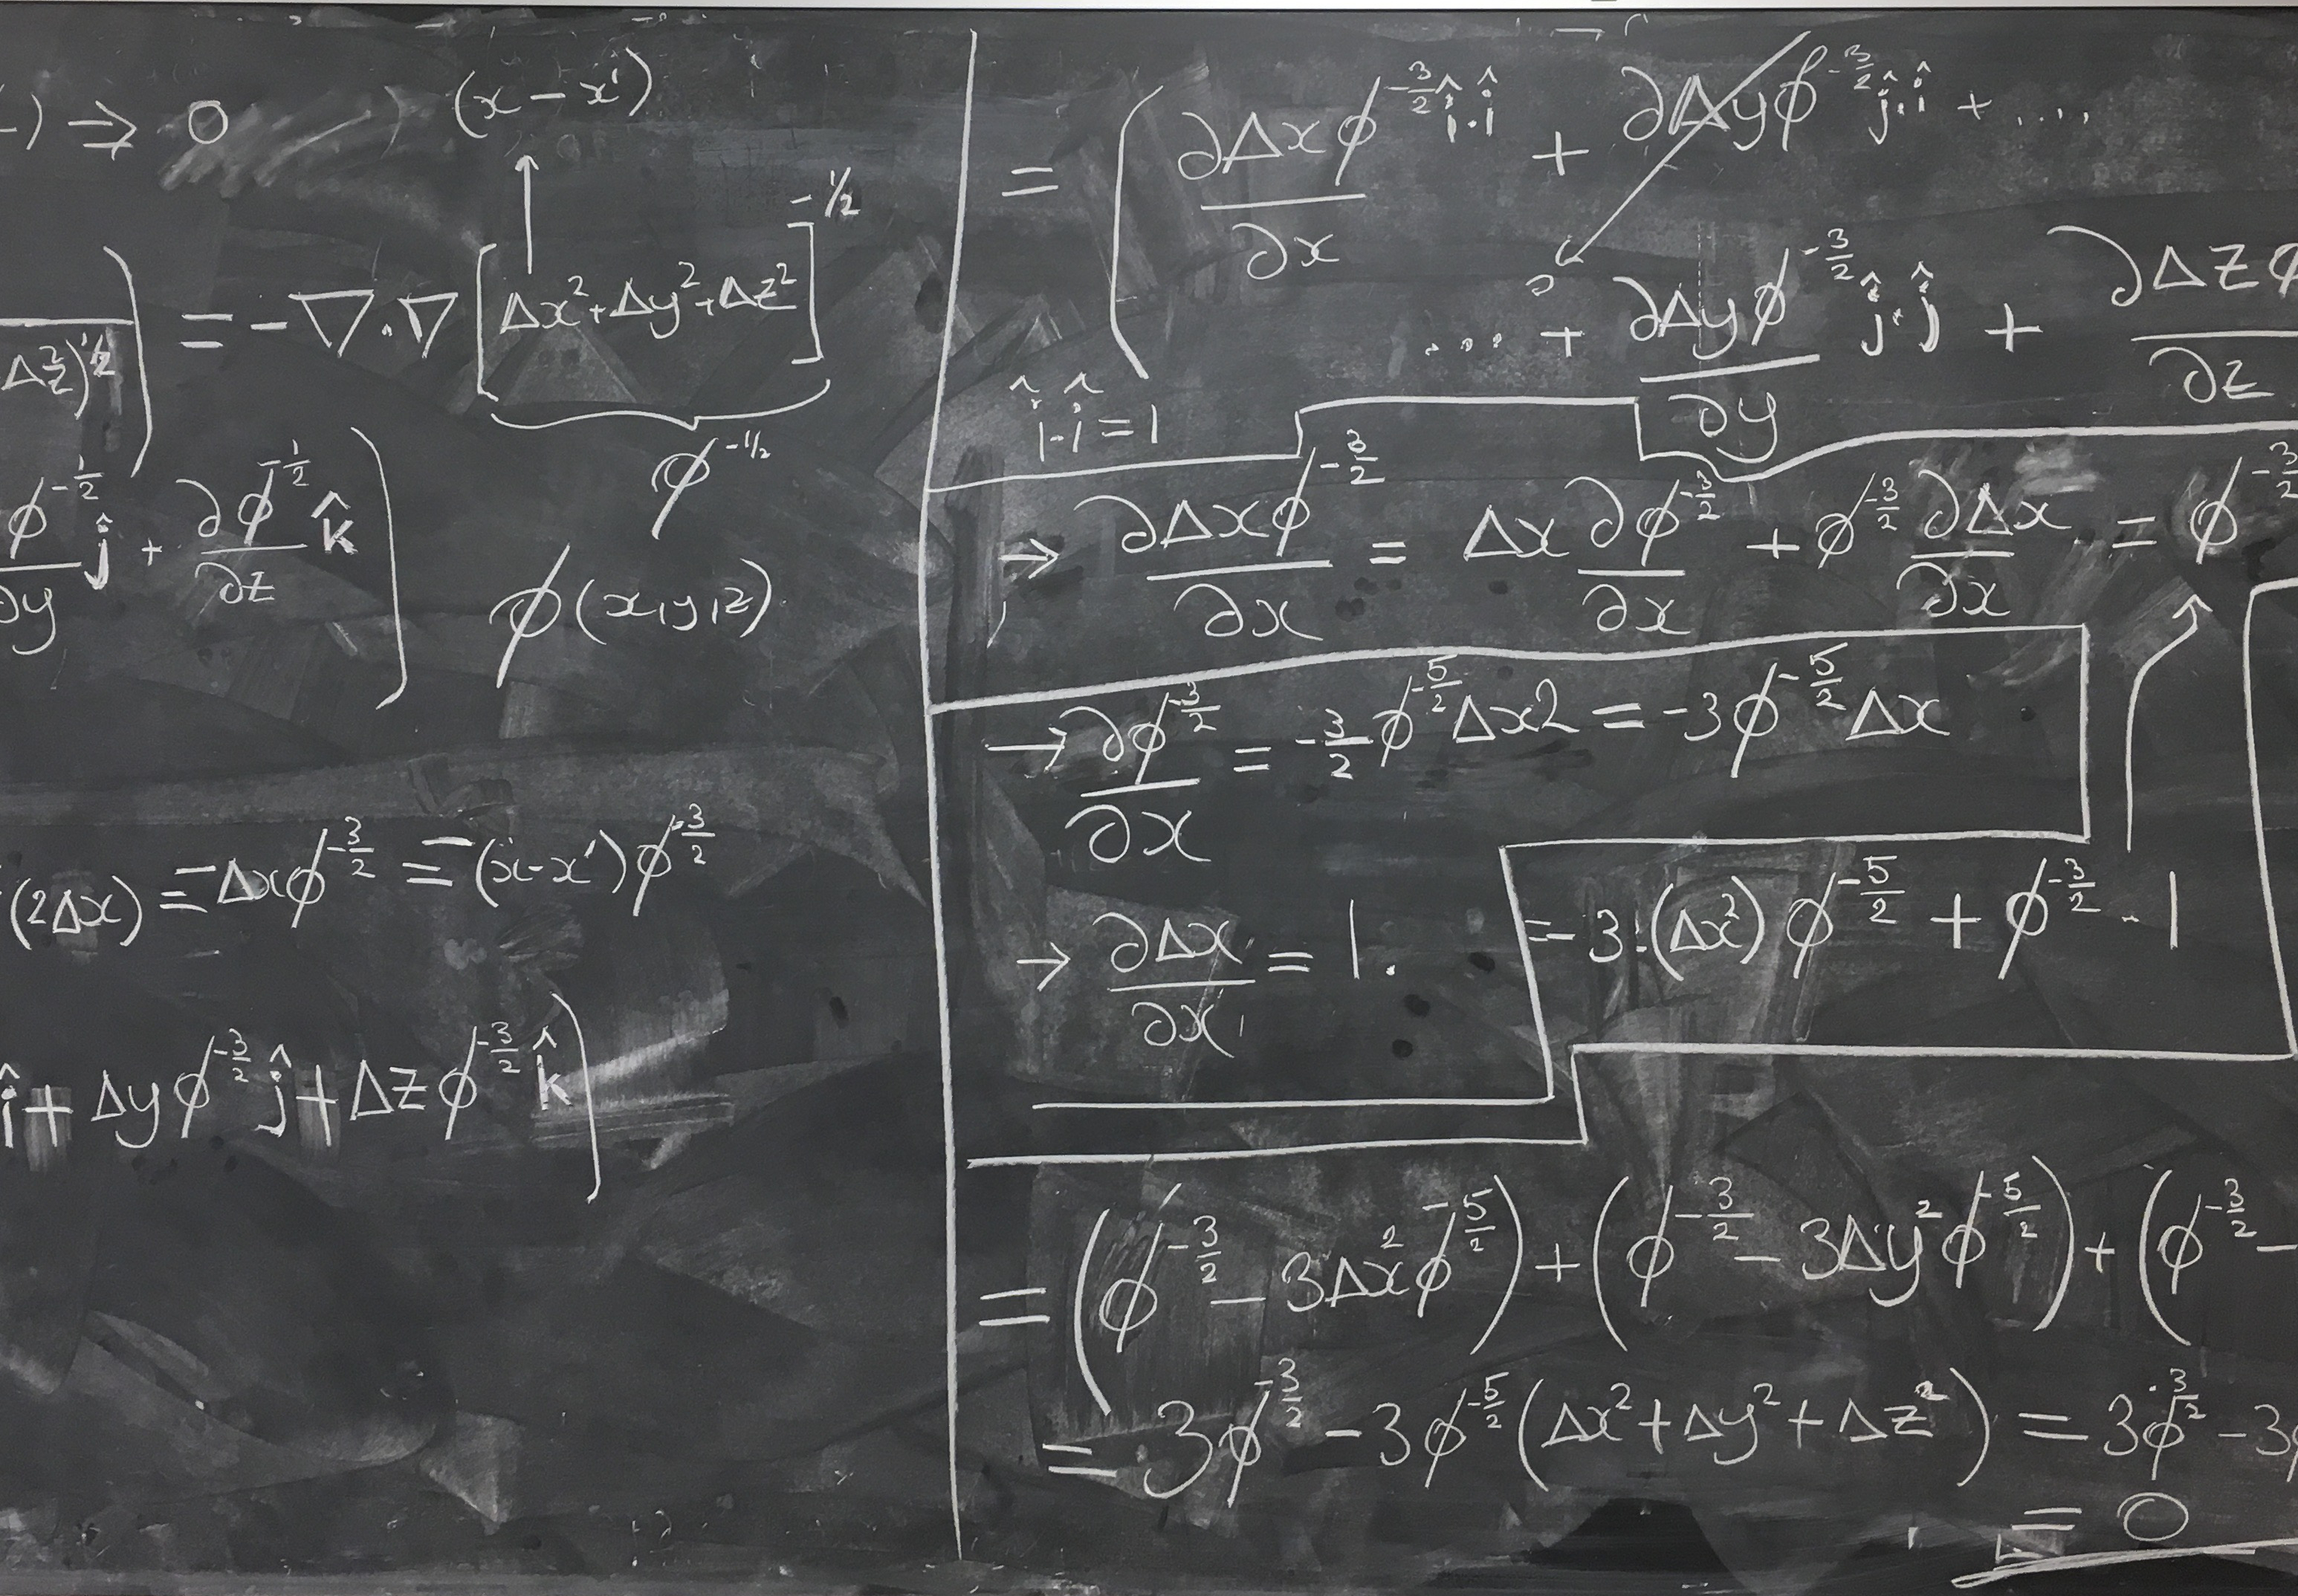 -) ⇒ 0
(x - x')
= -∇·∇ [Δx² + Δy² + Δz²]^{-1/2}
Δz²)^{1/2})
φ^{-1/2}
φ^{-1/2}/∂y ĵ + ∂φ^{-1/2}/∂z k̂)
φ(x,y,z)
(2Δx) = -Δxφ^{-3/2} = -(x-x')φ^{-3/2}
î + Δyφ^{-3/2} ĵ + Δzφ^{-3/2} k̂)
= (∂Δxφ^{-3/2}/∂x î·î + ∂Δyφ^{-3/2} ĵ·î + ....
0
.... + ∂Δyφ^{-3/2}/∂y ĵ·ĵ + ∂Δzφ/∂z
î·î = 1
⇒ ∂Δxφ^{-3/2}/∂x = Δx ∂φ^{-3/2}/∂x + φ^{-3/2} ∂Δx/∂x = φ^{-3/2}
→ ∂φ^{-3/2}/∂x = -3/2 φ^{-5/2} Δx2 = -3φ^{-5/2} Δx
→ ∂Δx/∂x = 1.
= -3·(Δx²) φ^{-5/2} + φ^{-3/2} · 1
= (φ^{-3/2} - 3Δx²φ^{-5/2}) + (φ^{-3/2} - 3Δy²φ^{-5/2}) + (φ^{-3/2} -
= 3φ^{-3/2} - 3φ^{-5/2}(Δx² + Δy² + Δz²) = 3φ^{-3/2} - 3φ
= 0